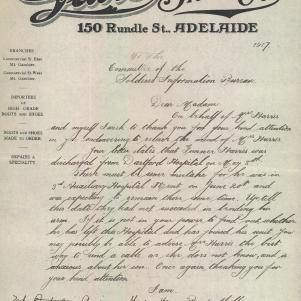 150 Rundle St., ADELAIDE
BRANCHES
Commercial St. East
Mt. Gambier.
Commercial St. West
Mt. Gambier.
IMPORTERS
OF
HIGH GRADE
BOOTS AND SHOES
BOOTS AND SHOES
MADE TO ORDER
REPAIRS A
SPECIALITY
1917.
To The
Committee of the
Soldiers Information Bureau.
Dear Madam
On behalf of Mrs Harris
and myself I wish to thank you for your kind attention
in endeavouring to relieve the mind of Mrs Harris
Your letter states that Gunner Harris was
discharged from Dartford Hospital on May 5th.
There must be some mistake for he was in
3rd Auxiliary Hospital Kent on June 20th and
was expecting to remain there some time. Up till
this date they had not succeeded in locating his
arm. If it is not in your power to find out whether
he has left the Hospital and has joined his unit. You
may possibly be able to advise Mrs Harris the best
way to send a cable as she does not know, and is
anxious about her son. Once again thanking you for
your kind attention.
I am.